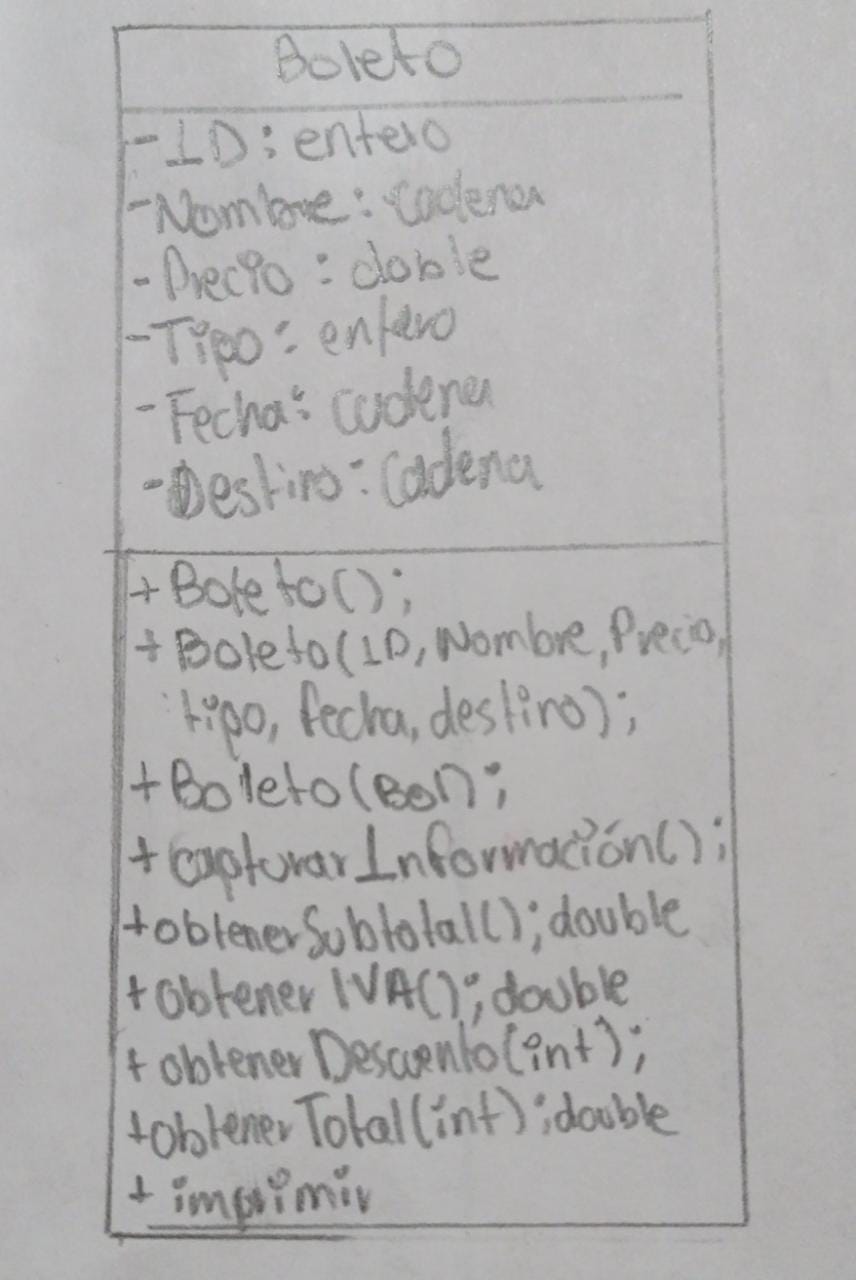 Boleto
-ID: entero
-Nombre: cadena
-Precio: doble
-Tipo: entero
-Fecha: cadena
-Destino: Cadena
+Boleto();
+Boleto(ID, Nombre, Precio,
tipo, fecha, destino);
+Boleto(Bol);
+capturarInformación();
+obtenerSubtotal(); double
+obtener IVA(); double
+obtener Descuento(int);
+obtener Total(int); double
+imprimir